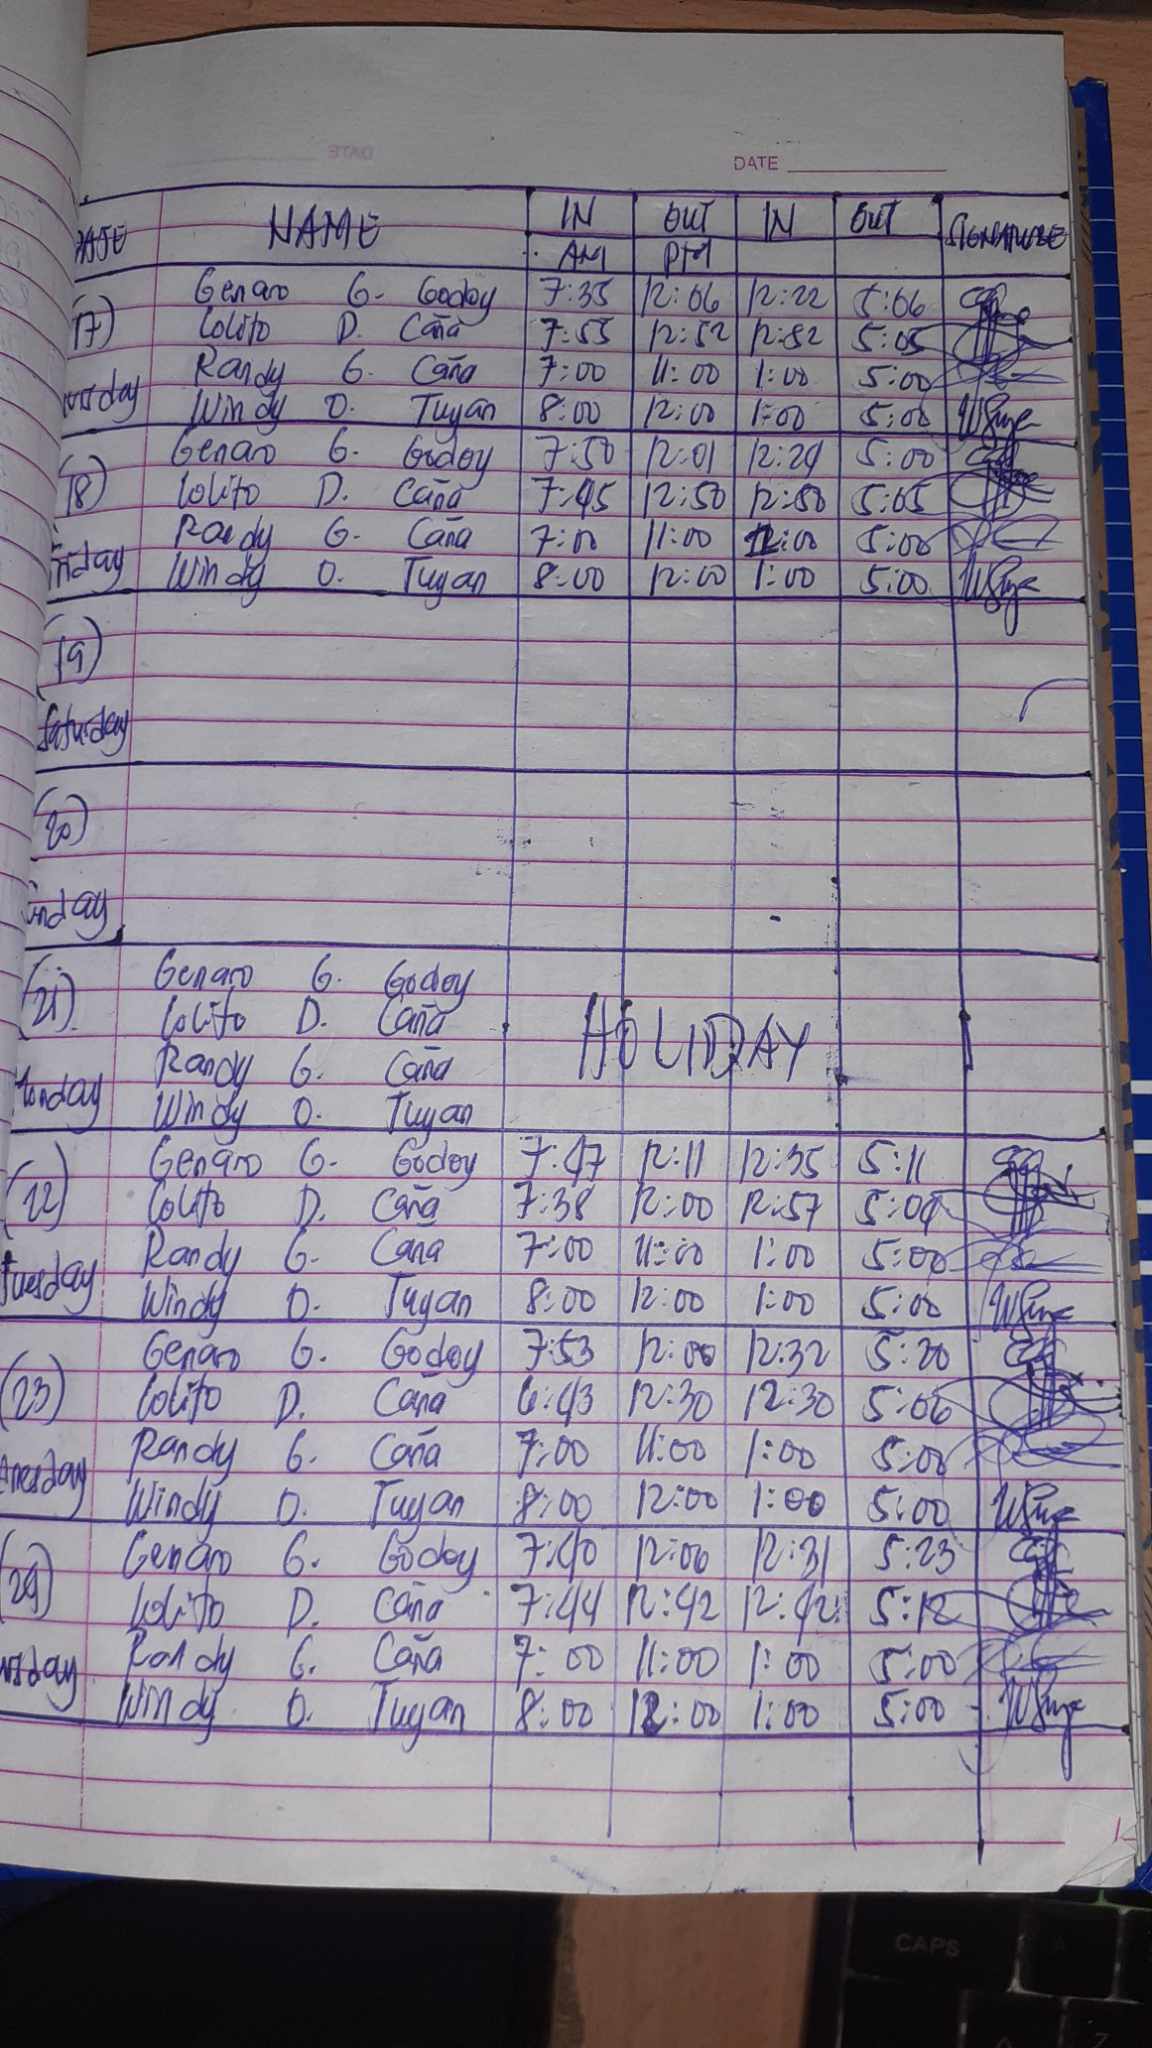 DATE
DATE NAME IN OUT IN OUT SIGNATURE
AM PM
Genaro G. Godoy 7:35 12:06 12:22 5:06
(17) Lolito D. Caña 7:55 12:52 12:52 5:05
Randy G. Caña 7:00 11:00 1:00 5:00
ursday Windy O. Tuyan 8:00 12:00 1:00 5:00
Genaro G. Godoy 7:50 12:01 12:29 5:00
(18) Lolito D. Caña 7:45 12:50 12:50 5:05
Randy G. Caña 7:00 11:00 1:00 5:00
Friday Windy O. Tuyan 8:00 12:00 1:00 5:00
(19)
Saturday
(20)
unday
Genaro G. Godoy
(21) Lolito D. Caña HOLIDAY
Randy G. Caña
Monday Windy O. Tuyan
Genaro G. Godoy 7:47 12:11 12:35 5:11
(22) Lolito D. Caña 7:38 12:00 12:57 5:09
Randy G. Caña 7:00 11:00 1:00 5:00
Tuesday Windy O. Tuyan 8:00 12:00 1:00 5:00
Genaro G. Godoy 7:53 12:00 12:32 5:20
(23) Lolito D. Caña 6:43 12:30 12:30 5:06
Randy G. Caña 7:00 11:00 1:00 5:00
dnesday Windy O. Tuyan 8:00 12:00 1:00 5:00
Genaro G. Godoy 7:40 12:06 12:31 5:23
(24) Lolito D. Caña 7:44 12:42 12:42 5:12
Randy G. Caña 7:00 11:00 1:00 5:00
ursday Windy O. Tuyan 8:00 12:00 1:00 5:00
CAPS A
Z